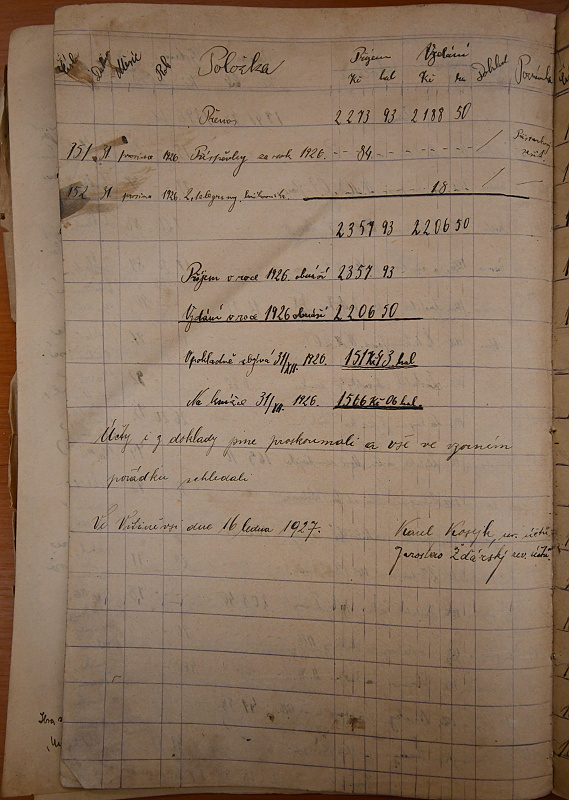 Příjem Vydání
Datum Měsíc Rok Položka Kč hal Kč hal Doklad Poznámka
Přenos 2273 93 2188 50
151 31 prosince 1926 Příspěvky za rok 1926. 84 - /
152 31 prosince 1926 2 telegramy, 18 - /
2357 93 2206 50
Příjem v roce 1926. obnáší 2357 93
Vydání v roce 1926 obnáší 2206 50
V pokladně zbývá 31/XII. 1926. 151 Kč 43 hal
Na knížce 31/XII. 1926. 1566 Kč 06 hal.
Účty i z doklady jsme proskoumali a vše ve vzorném
pořádku schledali
Ve dne 16 ledna 1927.
Karel rev. účtů
Jaroslav Žďárský rev. účtů.